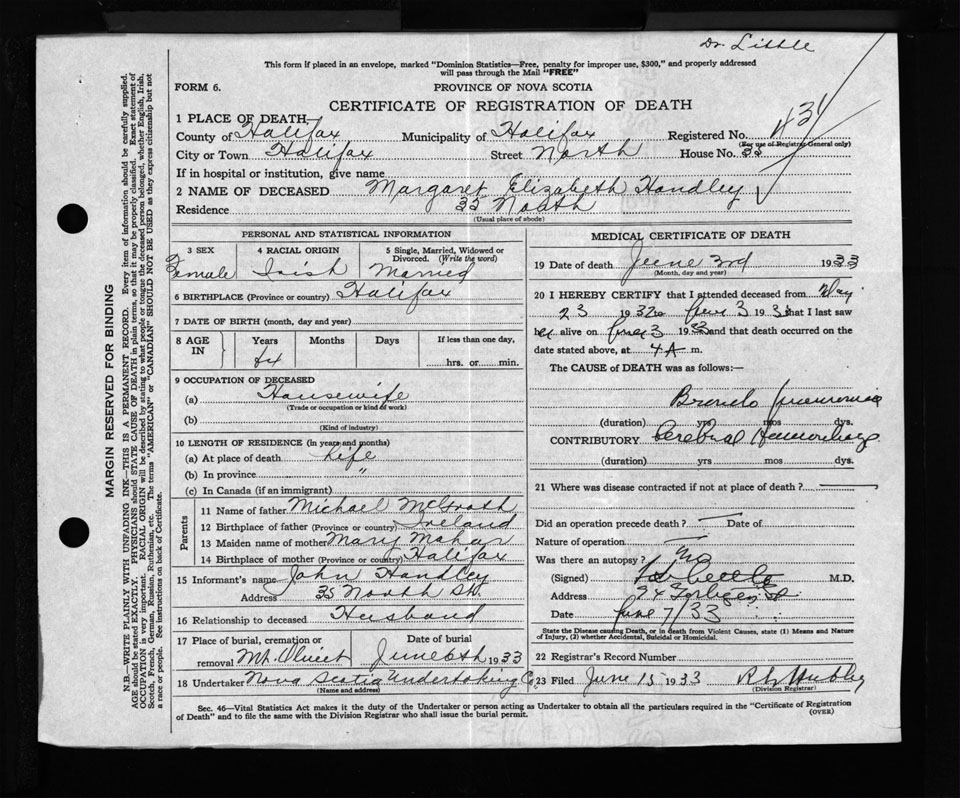 Dr. Little
This form if placed in an envelope, marked "Dominion Statistics—Free, penalty for improper use, $300," and properly addressed
will pass through the Mail "FREE"
FORM 6.
PROVINCE OF NOVA SCOTIA
CERTIFICATE OF REGISTRATION OF DEATH
434
1 PLACE OF DEATH
County of Halifax Municipality of Halifax Registered No.
(For use of Registrar General only)
City or Town Halifax Street North House No. 35
If in hospital or institution, give name
2 NAME OF DECEASED Margaret Elizabeth Handley
Residence 35 North
(Usual place of abode)
PERSONAL AND STATISTICAL INFORMATION
3 SEX 4 RACIAL ORIGIN 5 Single, Married, Widowed or
Divorced. (Write the word)
Female Irish Married
6 BIRTHPLACE (Province or country) Halifax
7 DATE OF BIRTH (month, day and year)
8 AGE IN Years Months Days If less than one day,
hrs. or min.
9 OCCUPATION OF DECEASED
(a) Housewife
(Trade or occupation or kind of work)
(b)
(Kind of industry)
10 LENGTH OF RESIDENCE (in years and months)
(a) At place of death Life
(b) In province "
(c) In Canada (if an immigrant)
Parents
11 Name of father Michael McGrath
12 Birthplace of father (Province or country) Ireland
13 Maiden name of mother Mary Mahar
14 Birthplace of mother (Province or country) Halifax
15 Informant's name John Handley
Address 35 North St.
16 Relationship to deceased Husband
17 Place of burial, cremation or Date of burial
removal Mt. Olivet June 6th 1933
18 Undertaker Nova Scotia Undertaking Co
(Name and address)
MEDICAL CERTIFICATE OF DEATH
19 Date of death June 3rd 1933
(Month, day and year)
20 I HEREBY CERTIFY that I attended deceased from May
23 1932 to June 3 1933 that I last saw
her alive on June 3 1933 and that death occurred on
the date stated above, at 4 A m.
The CAUSE of DEATH was as follows:—
Broncho pneumonia
(duration) yrs mos dys.
CONTRIBUTORY Cerebral Hemorrhage
(duration) yrs mos dys.
21 Where was disease contracted if not at place of death? —
Did an operation precede death? — Date of
Nature of operation —
Was there an autopsy? No
(Signed) M.D.
Address 34
Date June 7/33
State the Disease causing Death, or in death from Violent Causes, state (1) Means and Nature
of Injury, (2) whether Accidental, Suicidal or Homicidal.
22 Registrar's Record Number
23 Filed June 15 1933
(Division Registrar)
Sec. 46—Vital Statistics Act makes it the duty of the Undertaker or person acting as Undertaker to obtain all the particulars required in the "Certificate of Registration
of Death" and to file the same with the Division Registrar who shall issue the burial permit.
(OVER)
MARGIN RESERVED FOR BINDING
N.B.—WRITE PLAINLY WITH UNFADING INK—THIS IS A PERMANENT RECORD. Every item of information should be carefully supplied.
AGE should be stated EXACTLY. PHYSICIANS should STATE CAUSE OF DEATH in plain terms, so that it may be properly classified. Exact statement of
OCCUPATION is very important. RACIAL ORIGIN will be described by stating to what people or tongue the deceased person belonged, whether English, Irish,
Scotch, French, German, Russian, Ruthenian, etc. The terms "AMERICAN" or "CANADIAN" SHOULD NOT BE USED as they express citizenship but not
a race or people. See instructions on back of Certificate.